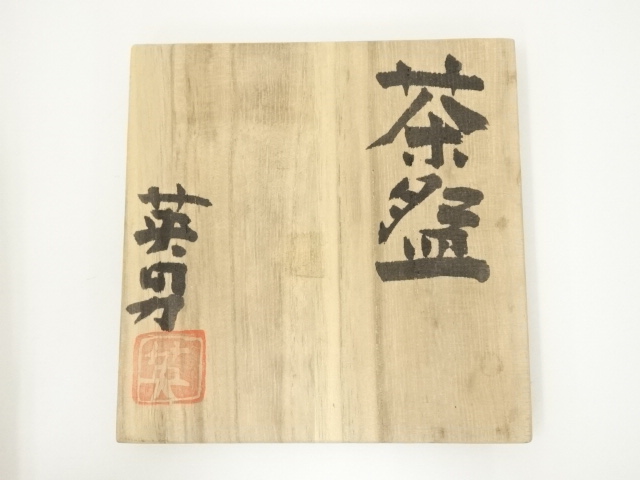 茶盌
英男
英